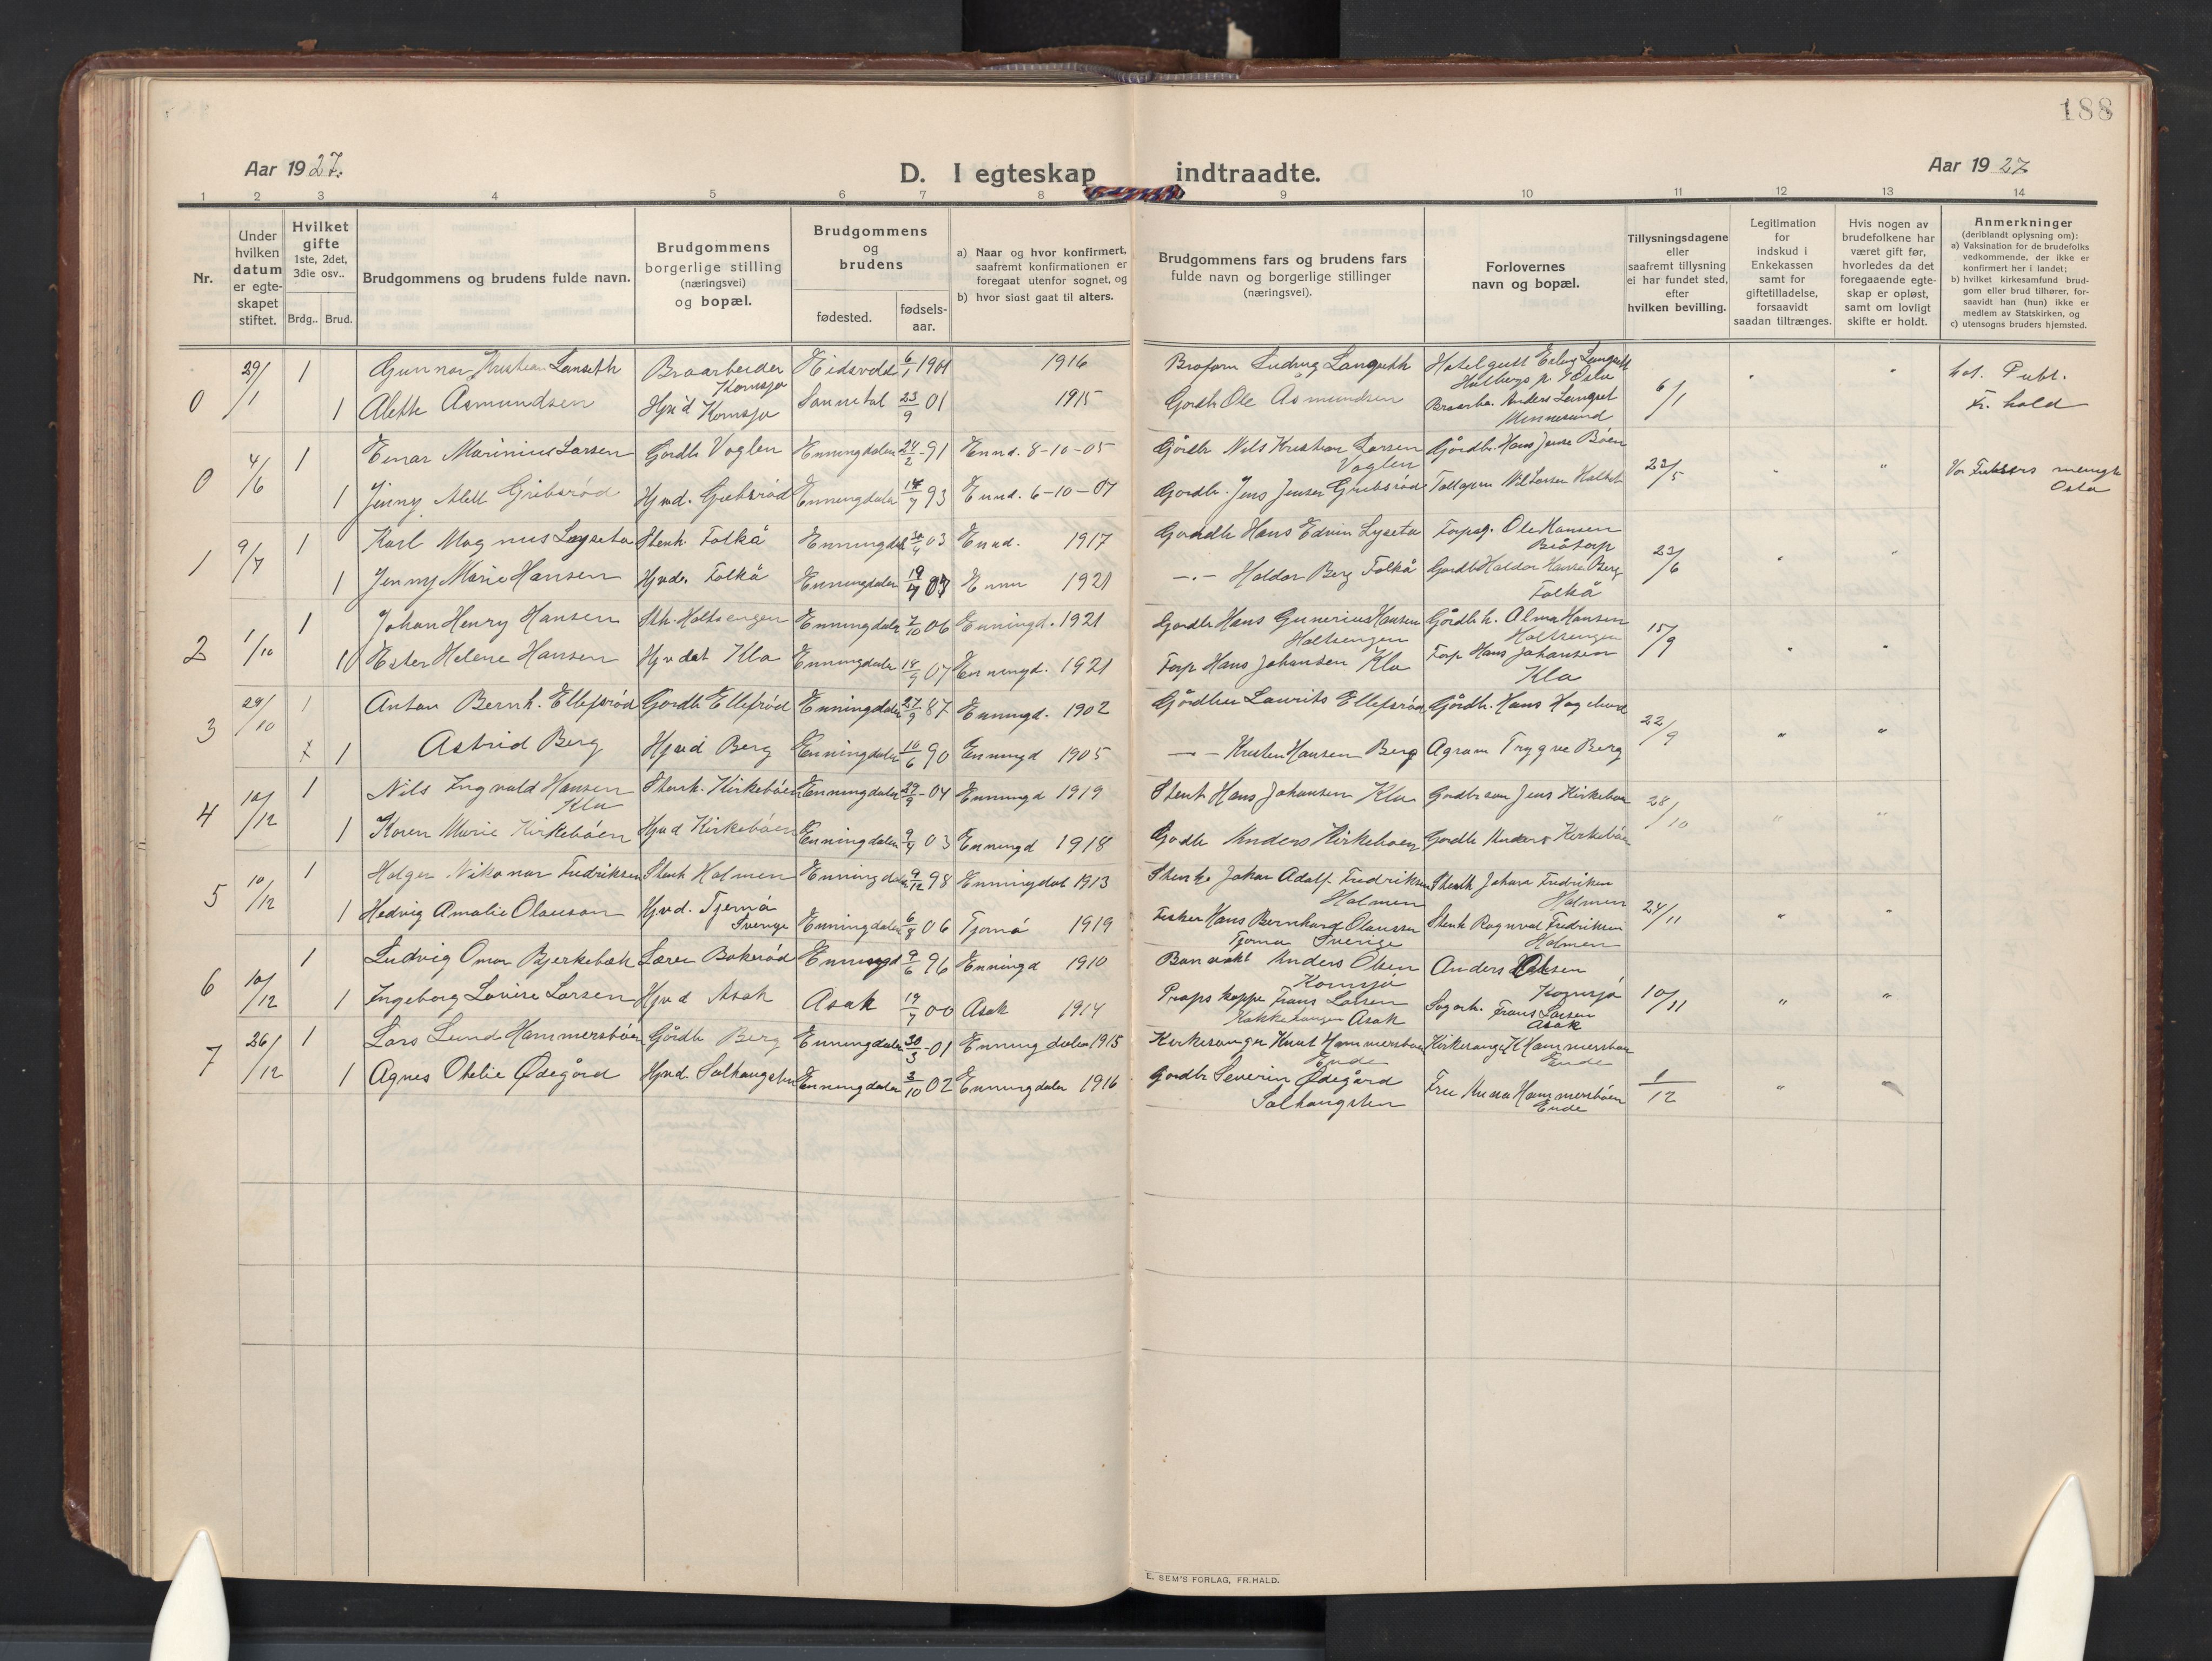 188
Aar 1927.
D. I egteskap indtraadte.
Aar 1927
1 2 3 4 5 6 7 8 9 10 11 12 13 14
Nr.
Under hvilken datum er egte-skapet stiftet.
Hvilket gifte 1ste, 2det, 3die osv..
Brdg.. Brud.
Brudgommens og brudens fulde navn.
Brudgommens borgerlige stilling (næringsvei) og bopæl.
Brudgommens og brudens
fødested.
fødsels-aar.
a) Naar og hvor konfirmert, saafremt konfirmationen er foregaat utenfor sognet, og
b) hvor sidst gaat til alters.
Brudgommens fars og brudens fars fulde navn og borgerlige stillinger (næringsvei).
Forlovernes navn og bopæl.
Tillysningsdagene eller saafremt tillysning ei har fundet sted, efter hvilken bevilling.
Legitimation for indskud i Enkekassen samt for giftetilladelse, forsaavidt saadan tiltrænges.
Hvis nogen av brudefolkene har været gift før, hvorledes da det foregaaende egte-skap er opløst, samt om lovligt skifte er holdt.
Anmerkninger (deriblandt oplysning om):
a) Vaksination for de brudefolks vedkommende, der ikke er konfirmert her i landet;
b) hvilket kirkesamfund brud-gom eller brud tilhører, for-saavidt han (hun) ikke er medlem av Statskirken, og
c) utensogns bruders hjemsted.
0 29/1 1 Gunnar Kristian Lanseth Braarbeider Kornsjø Eidsvold 6/1 1901 1916 Ludvig Langseth Hotelgutt Erling Langseth Holbergs p Oslo 6/1
1 Alette Asmundsen Hjvd Kornsjø Sannidal 23/9 01 1915 Gordb Ole Asmundsen Anders Langset Minnesund Fr. hald
0 4/6 1 Einar Marinius Larsen Gordb Voglen Enningdalen 24/2 91 Ennd. 8-10-05 Gårdbr Nils Kristian Larsen Voglen Gårdbr. Hans Jensen Båen 22/5 Vor Frelsers menigh Oslo
1 Jenny Alett Gribsrød Hjvd. Gribsrød Enningdalen 14/7 93 Ennd. 6-10-07 Gordbr. Jens Jensen Gribsrød Nils Larsen Holtet
1 9/7 1 Karl Magnus Lyseto Stenh. Folkå Enningdal 03 Ennd. 1917 Gordb Hans Edvin Lyseto Ole Hansen 23/6
1 Jenny Marie Hansen Hjvd. Folkå Enningdalen 19/4 07 Enn 1921 -"- Haldor Berg Folkå Gordb Haldor Hansen Berg Folkå
2 1/10 1 Johan Henry Hansen Sth. Holtsengen Enningdalen 7/10 06 Enningd. 1921 Gordb Hans Gunerius Hansen Holtsengen Gårdb h. Alma Hansen Holtsengen 15/9
1 Ester Helene Hansen Hjvdat Kla Enningdalen 18/9 07 Enningd. 1921 Forp Hans Johansen Kla Forp Hans Johansen Kla
3 29/10 1 Anton Bernh. Ellefsrød Gordb Ellefsrød Enningdalen 27/9 87 Enningd. 1902 Gårdbr Laurits Ellefsrød Gårdb. Hans 22/9
1 Astrid Berg Hjvd Berg Enningdalen 10/6 90 Enningd 1905 -"- Kristen Hansen Berg Agronom Trygve Berg
4 10/12 1 Nils Ingvald Hansen Kla Stenh. Kirkebøen Enningdalen 29/9 04 Enningd 1919 Stenh Hans Johansen Kla Gordbr søn Jens Kirkebøen 28/10
1 Karen Marie Kirkebøen Hjvd Kirkebøen Enningdalen 9/4 03 Enningd 1918 Gordb Anders Kirkebøen Gordb Anders Kirkebøen
5 10/12 1 Holger Nikanor Fredriksen Stenh Holmen Enningdalen 9/12 98 Enningdal 1913 Stenh Johan Adolf Fredriksen Holmen Stenh Johan Fredriksen Holmen 24/11
1 Hedvig Amalie Olausson Hjvd. Tjernø Sverige Enningdalen 6/8 06 Tjernø 1919 Fisker Hans Bernhard Olausson Tjernø Sverige Stenh Ragnvald Fredriksen Holmen
6 10/12 1 Ludvig Omar Bjerkebæk Lærer Bokerød Enningd 9/6 96 Enningd 1910 Banevakt Anders Olsen Kornsjø Anders Olsen Kornsjø 10/11
1 Ingeborg Lovise Larsen Hjvd Asak Asak 14/7 00 Asak 1914 Frans Larsen Asak Frans Larsen Asak
7 26/12 1 Lars Lund Hammersbøen Gårdb Berg Enningdalen 30/3 01 Enningdalen 1915 Kirkesanger Knut Hammersbøen Ende Kirkesanger K Hammersbøen Ende 1/12
1 Agnes Othelie Ødegård Hjvd. Solhaugsten Enningdalen 3/10 02 Enningdalen 1916 Gordbr Severin Ødegård Solhaugsten Fru Anna Hammersbøen Ende
E. SEM'S FORLAG, FR.HALD.